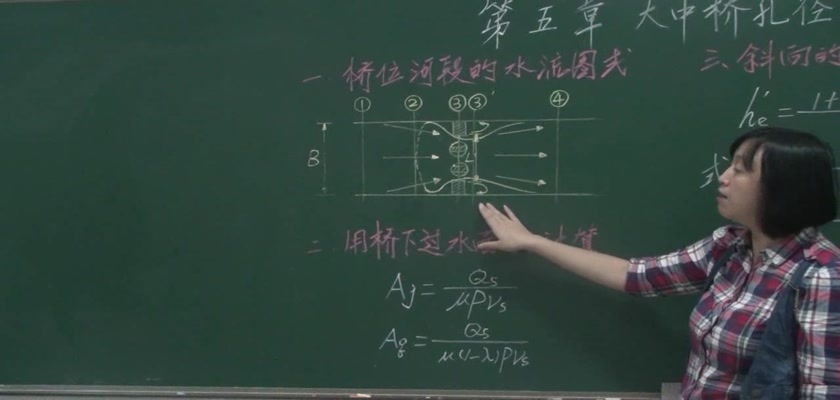 第五章 大中桥孔径
一 桥位河段的水流图式
① ② ③ ③' ④
B
L
二 用桥下过水 计算
Aj = Qs / μPνs
Aq = Qs / μ(1-λ)Pνs
三、斜向的
he' = 1+
式